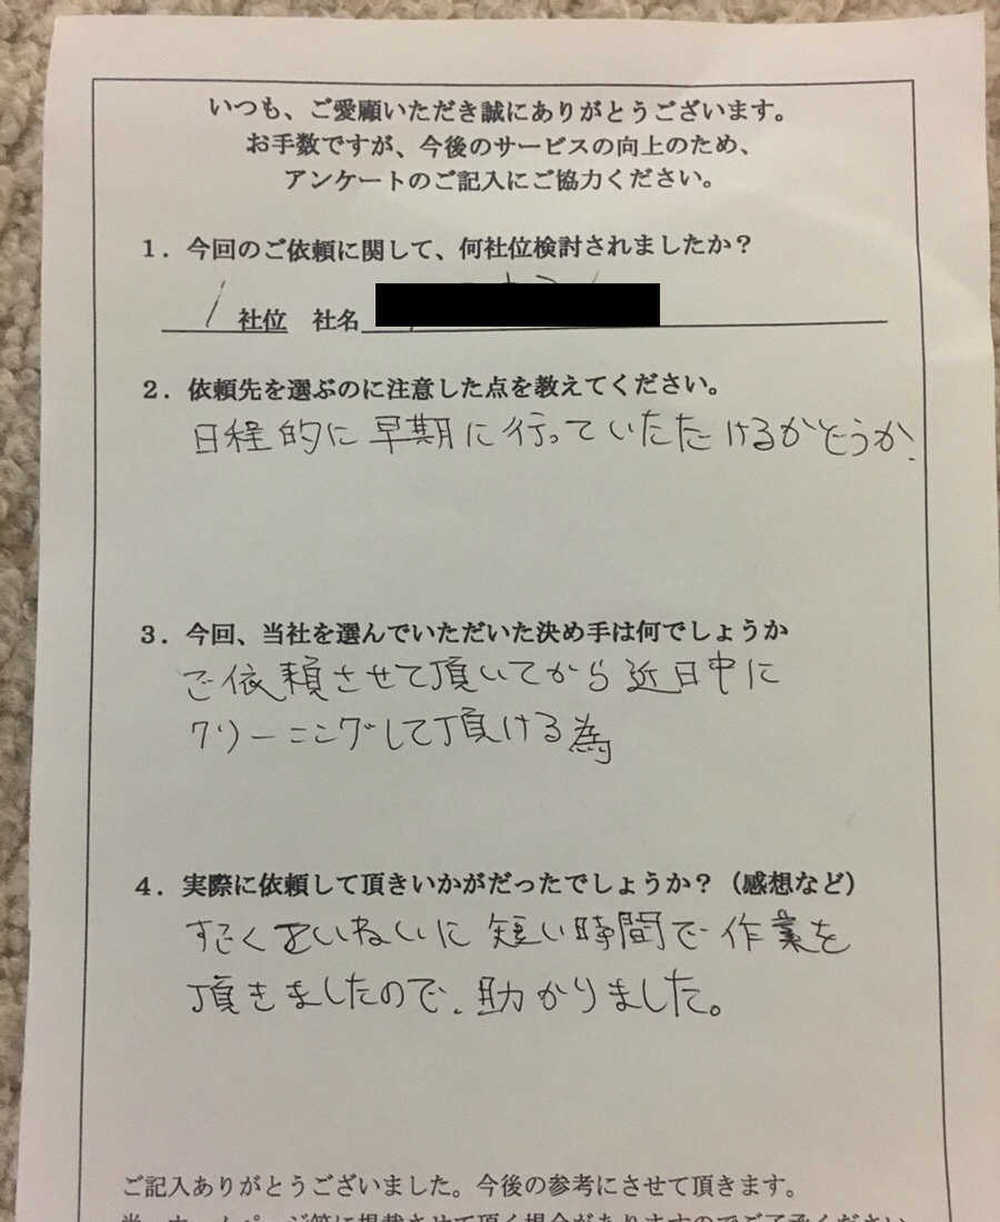 いつも、ご愛願いただき誠にありがとうございます。
お手数ですが、今後のサービスの向上のため、
アンケートのご記入にご協力ください。
１．今回のご依頼に関して、何社位検討されましたか？
1 社位 社名
２．依頼先を選ぶのに注意した点を教えてください。
日程的に早期に行っていただけるかどうか.
３．今回、当社を選んでいただいた決め手は何でしょうか
ご依頼させて頂いてから近日中に
クリーニングして頂ける為
４．実際に依頼して頂きいかがだったでしょうか？（感想など）
すごくていねいに短い時間で作業を
頂きましたので、助かりました。
ご記入ありがとうございました。今後の参考にさせて頂きます。
ホームページ等に掲載させて頂く場合がありますのでご了承ください